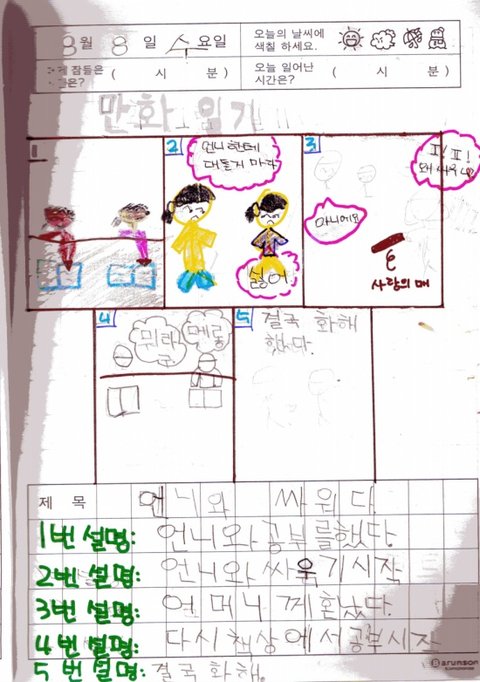 8월 8일 수요일
오늘의 날씨에 색칠 하세요.
잠들은
( 시 분)
오늘 일어난 시간은?
( 시 분)
만화 일기!!
1
2
언니한테
대들지 마라
싫어
3
I! I!
왜 싸우니?
아니에요
사랑의 매
4
뭐라
구
메롱
5
결국 화해
했다.
제 목 언니와 싸웠다
1번 설명: 언니와 공부를했다.
2번 설명: 언니와싸욱기시작
3번 설명: 어머니께혼났다.
4번 설명: 다시책상에서공부시작
5번 설명: 결국 화해.
Barunson